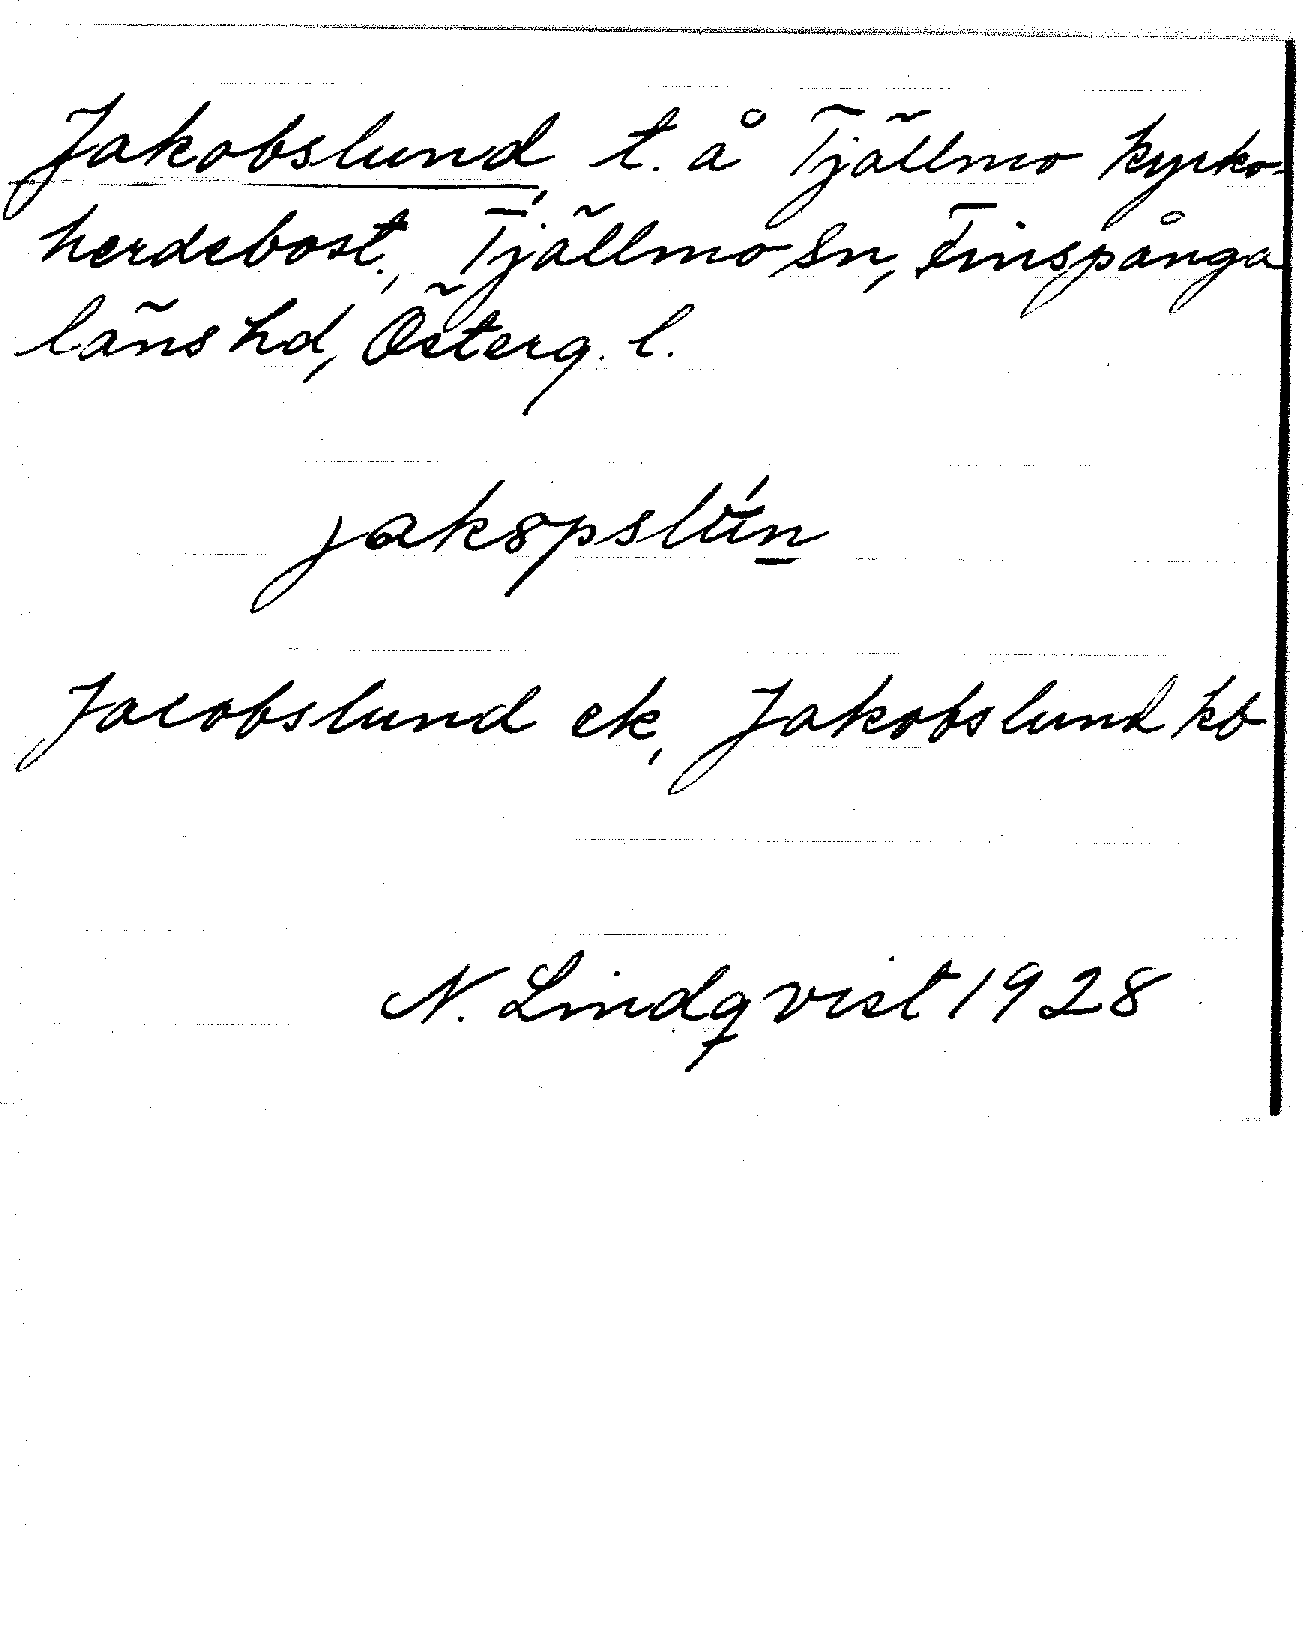 Jakobslund, t. å Tjällmo kyrko-
herdebost., Tjällmo sn, Finspånga
läns hd, Österg. l.
jakɔpslún
Jacobslund ek, Jakobslund kb
N. Lindqvist 1928